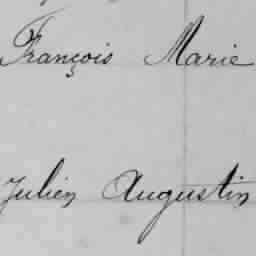 François Marie
Julien Augustin